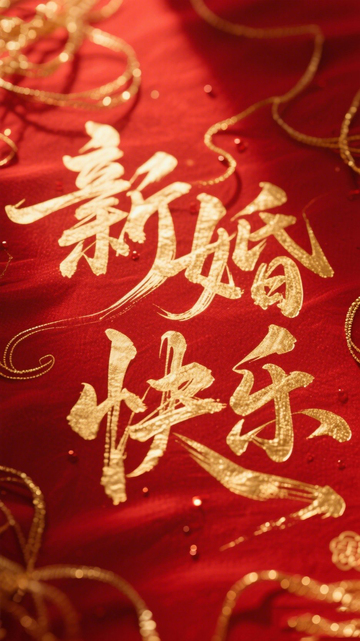 新婚
快乐